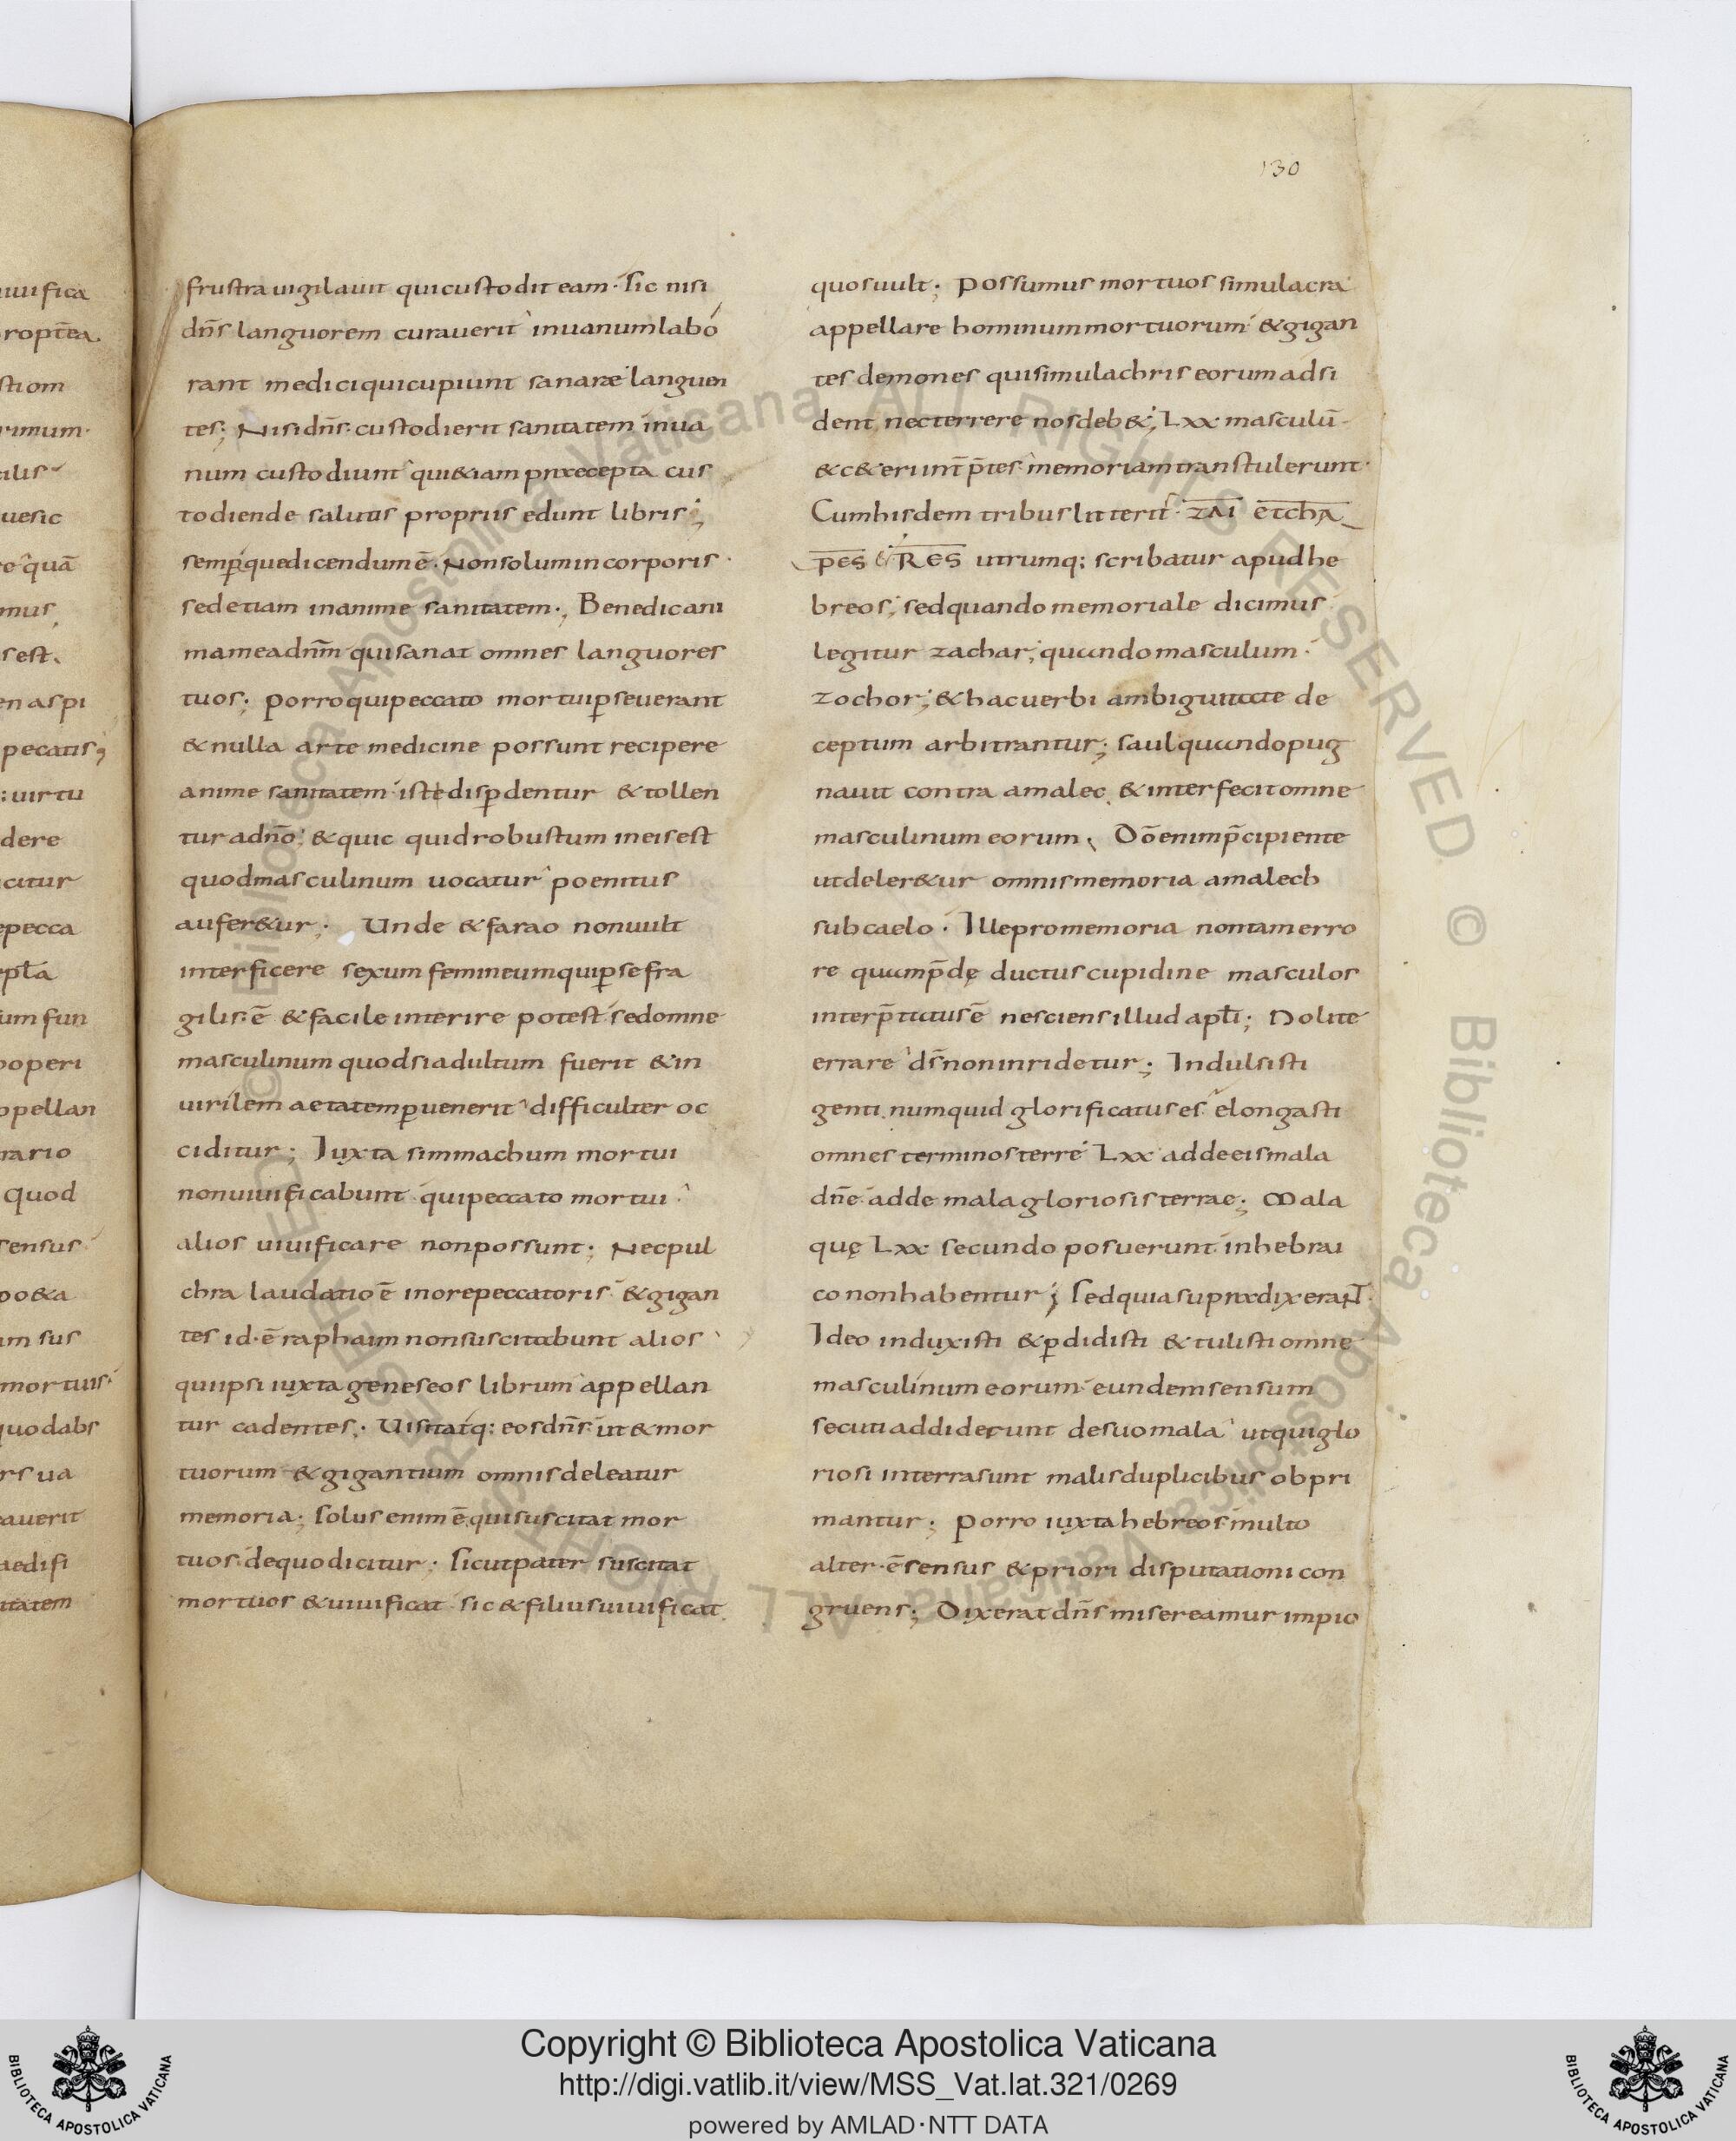 130
frustra uigilauit qui custodit eam· sic nisi
dn̄s languorem curauerit inuanum labo
rant medici qui cupiunt sanare languen
tes; Nisi dn̄s custodierit sanitatem inua
num custodiunt qui &iam praecepta cus
todiende salutis propriis edunt libris;
semp̱ que dicendum ē· Non solum in corporis
sed etiam in anime sanitatem·, Benedic ani
ma mea dn̄m qui sanat omnes languores
tuos; porro qui peccato mortui p̱seuerant
& nulla arte medicine possunt recipere
anime sanitatem iste disp̱dentur & tollen
tur a dn̄o; & quic quid robustum in eis est
quod masculinum uocatur poenitus
aufer&ur; Unde & farao non uult
interficere sexum femineum qui p̱ se fra
gilis· ē & facile interire potest sed omne
masculinum quod si adultum fuerit & in
uirilem aetatem p̱uenerit difficulter oc
ciditur; Iuxta simmachum mortui
non uiuificabunt qui peccato mortui
alios uiuificare non possunt; Nec pul
chra laudatio ē in ore peccatoris & gigan
tes id· ē raphaim non suscitabunt alios
qui ipsi iuxta geneseos librum appellan
tur cadentes;· Uisitatq: eos dn̄s ut & mor
tuorum & gigantium omnis deleatur
memoria; solus enim ē qui suscitat mor
tuos de quo dicitur; sicut pater suscitat
mortuos & uiuificat sic & filius uiuificat
quos uult; possumus mortuos simulacra
appellare hominum mortuorum & gigan
tes demones qui simulachris eorum adsi
dent nec terrere nos deb&; Lxx masculū
& c&eri int̄p̄tes memoriam transtulerunt·
Cum hisdem tribus litteris zai et cha
res utrumq; scribatur apud he
breos; sed quando memoriale dicimus
legitur zachar; quando masculum·
zochor; & hac uerbi ambiguitate de
ceptum arbitrantur; saul quando pug
nauit contra amalec & interfecit omne
masculinum eorum· Dō enim p̄cipiente
ut deler&ur omnis memoria amalech
sub caelo· Ille pro memoria non tam erro
re quam p̄dę ductus cupidine masculos
interp̄tatus ē nesciens illud apl̄i; Nolite
errare ds̄ non inridetur; Indulsisti
genti numquid glorificatus es elongasti
omnes terminos terre Lxx adde eis mala
dn̄e adde mala gloriosis terrae; Mala
quę Lxx secundo posuerunt in hebrai
co non habentur; sed quia supra dixerant·
Ideo induxisti & p̱didisti & tulisti omne
masculinum eorum eundem sensum
secuti addiderunt de suo mala ut qui glo
riosi in terra sunt malis duplicibus obpri
mantur; porro iuxta hebreos multo
alter· ē sensus & priori disputationi con
gruens; Dixerat dn̄s misereamur impio
Copyright © Biblioteca Apostolica Vaticana
http://digi.vatlib.it/view/MSS_Vat.lat.321/0269
powered by AMLAD·NTT DATA